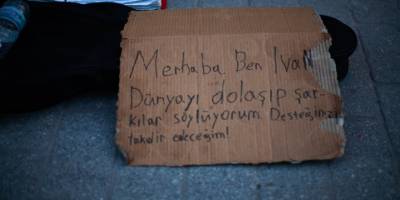 Merhaba Ben Ivan
Dünyayı dolaşıp şar-
kılar söylüyorum. Desteğinizi
takdir edeceğim!